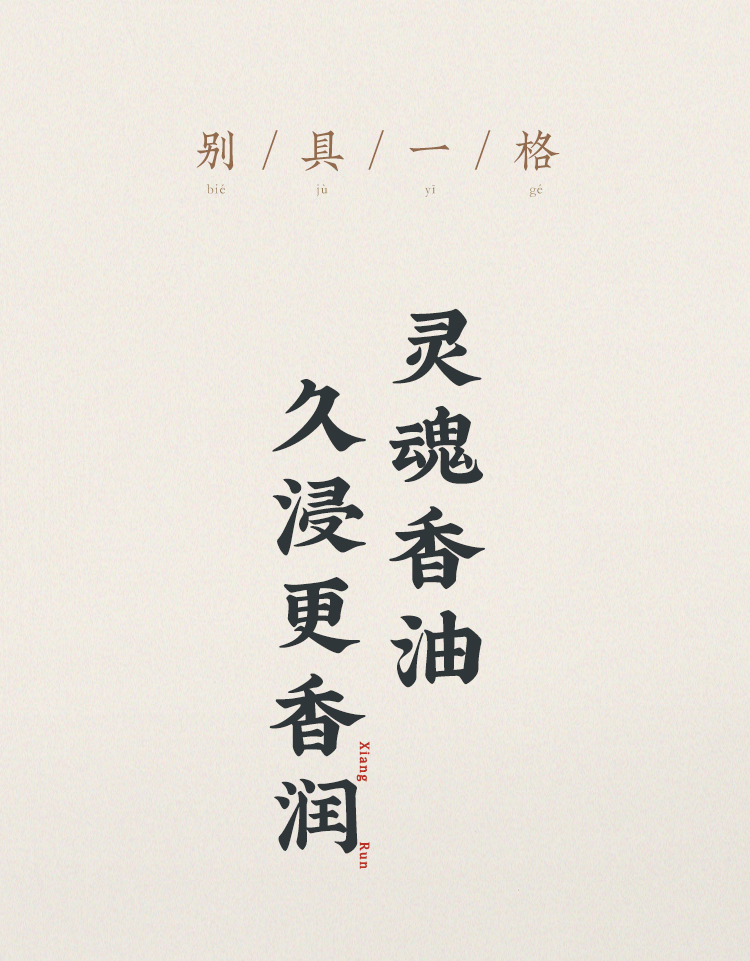 别/具/一/格
bié jù yī gé
灵魂香油
久浸更香润
Xiang Run